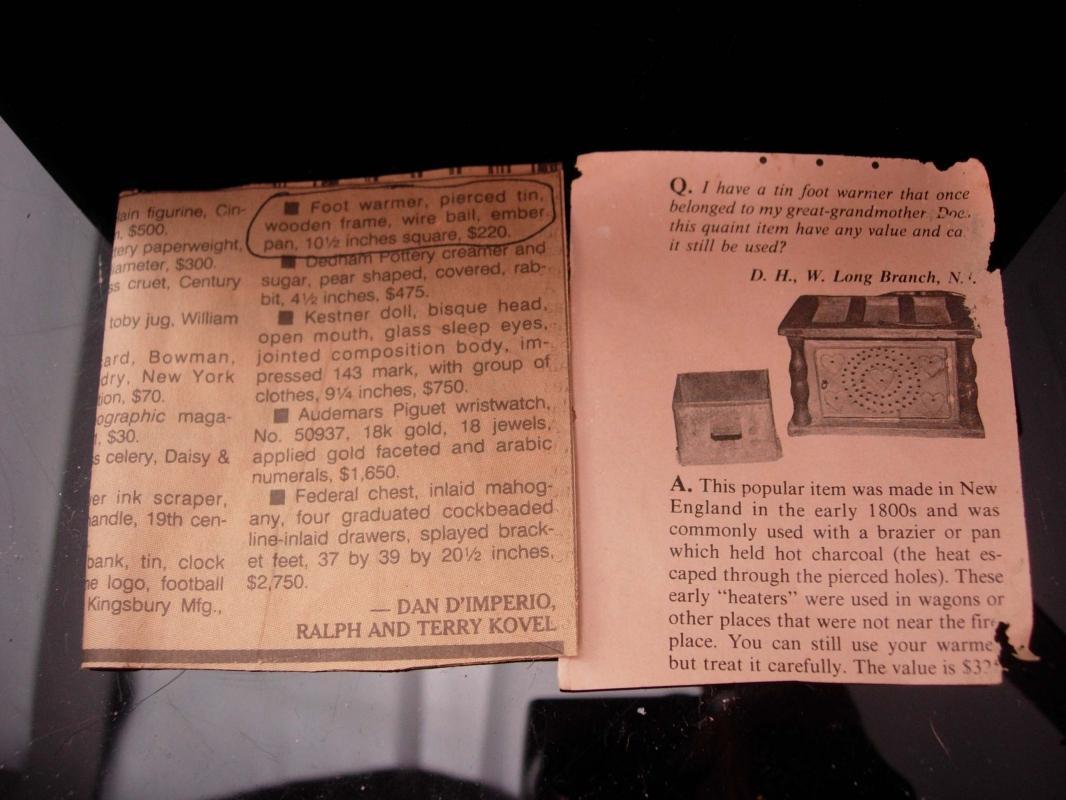 ain figurine, Cin-
, $500.
tery paperweight,
iameter, $300.
ss cruet, Century
toby jug, William
ard, Bowman,
dry, New York
ion, $70.
ographic maga-
, $30.
s celery, Daisy &
er ink scraper,
handle, 19th cen-
bank, tin, clock
e logo, football
Kingsbury Mfg.,
■ Foot warmer, pierced tin,
wooden frame, wire bail, ember
pan, 10½ inches square, $220.
■ Dedham Pottery creamer and
sugar, pear shaped, covered, rab-
bit, 4½ inches, $475.
■ Kestner doll, bisque head,
open mouth, glass sleep eyes,
jointed composition body, im-
pressed 143 mark, with group of
clothes, 9¼ inches, $750.
■ Audemars Piguet wristwatch,
No. 50937, 18k gold, 18 jewels,
applied gold faceted and arabic
numerals, $1,650.
■ Federal chest, inlaid mahog-
any, four graduated cockbeaded
line-inlaid drawers, splayed brack-
et feet, 37 by 39 by 20½ inches,
$2,750.
— DAN D'IMPERIO,
RALPH AND TERRY KOVEL
Q. I have a tin foot warmer that once
belonged to my great-grandmother. Does
this quaint item have any value and ca
it still be used?
D. H., W. Long Branch, N.
A. This popular item was made in New
England in the early 1800s and was
commonly used with a brazier or pan
which held hot charcoal (the heat es-
caped through the pierced holes). These
early "heaters" were used in wagons or
other places that were not near the fire
place. You can still use your warme
but treat it carefully. The value is